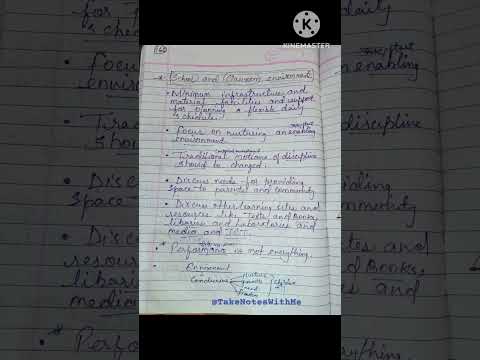 160
KINEMASTER
* School and Classroom environment
• Minimum infrastructure and
material facilities and support
for planning a flexible daily
schedule.
• Focus on nurturing an enabling
environment
• Traditional notions of discipline
should be changed.
• Discuss needs for providing
space to parents and community
• Discuss other learning sites and
resources like Texts and Books,
libraries and laboratories and
media and ICT.
* Performance is not everything.
• Environment
Conducive
Nurture
@TakeNotesWithMe